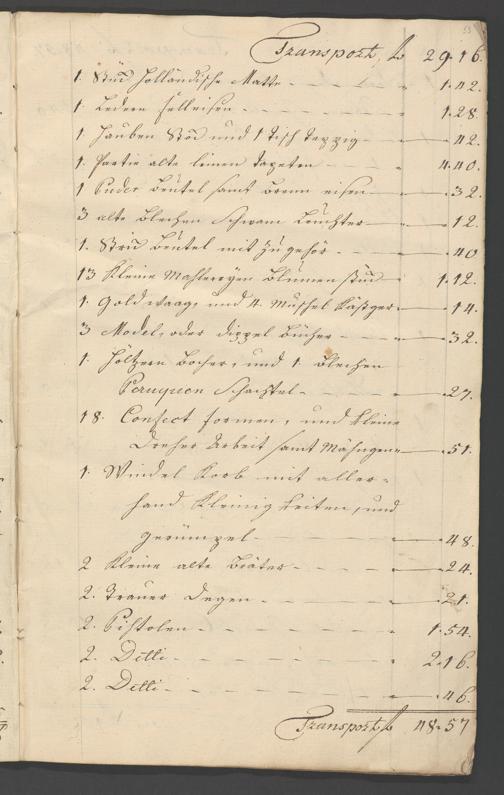 53
Transport, fl 29.16.
1. Stuck Holländische Matte - - - " 1.42.
1. Ledern Felleisen - - - - " 1.28.
1 Hauben Stock und 1 Tisch Teppig - " 42.
1. Partie alte leinen Tapeten - - " 4.40.
1 Puder Beutel samt Brenn eisen " 32.
3 alte Blechen Schwam Leuchter " 12.
1. Strick Beutel mit Zugehör - - " 40
13 Kleine Mahlereyen Blumen stuck " 1.12.
1. Gold waag, und 4. Muschel " 14.
3 Model, oder Bücher - - " 32.
1. Höltzern Becher, und 1. Blechen
Peruquen Schachtel - - - - " 27.
18. Confect formen, und kleine
Dreher Arbeit samt " 51.
1. Windel Korb mit aller-
hand Kleinigkeiten, und
gerümpel - - - - " 48.
2 Kleine alte Bräter - - - " 24.
2. Trauer Degen - - - - " 21.
2. Pistolen - - - - - " 1.54.
2. Ditti - - - - - " 2.16.
2. Ditti - - - - - " 46.
Transport fl 48.57